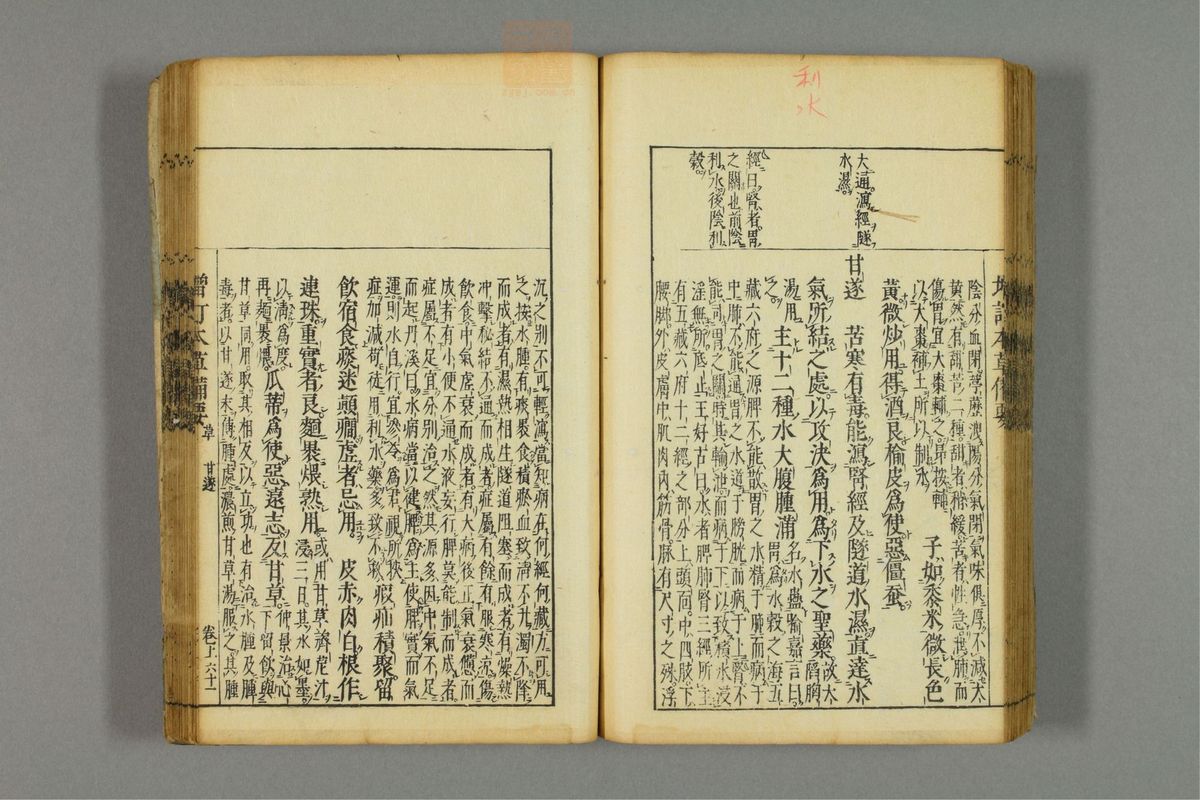 利水
大通瀉經隧
水濕。
經曰腎者胃
之關也前陰
利水後陰利
穀。
增訂本草備要
陰分血閉葶藶泄陽分氣閉氣味俱厚不減大
黃然有甜苦二種甜者稍緩苦者性急泄肺而
傷胃宜大棗輔之昂按輔
以大棗補土所以制水 子如黍米微長色
黃微炒用得酒良榆皮爲使惡僵蚕
甘遂 苦寒有毒能瀉腎經及隧道水濕直達水
氣所結之處以攻決爲用爲下水之聖藥故大陷胸
湯用之。主十二種水大腹腫滿名水蠱喻嘉言曰胃爲水穀之海五
藏六府之源脾不能散胃之水精于肺而病于
中肺不能通胃之水道于膀胱而病于上腎不
能司胃之關時其輸泄而病于下以致積水浸
淫無所底止王好古曰水者脾肺腎三經所主
有五藏六府十二經之部分上頭面中四肢下
腰脚外皮膚中肌肉內筋骨脉有尺寸之殊浮
沉之别不可輕瀉當知病在何經何藏方可用
之按水腫有痰裹食積瘀血致清不升濁不降
而成者有濕熱相生隧道阻塞而成者有燥熱
冲擊秘結不通而成者症屬有餘有服寒涼傷
飲食中氣虛衰而成者有大病後正氣衰憊而
成者有小便不通水液妄行脾莫能制而成者
症屬不足宜分别治之然其源多因中氣不足
而起丹溪曰水病當以健脾爲主使脾實而氣
運則水自行宜參苓爲君視所挾
症加減苟徒用利水藥多致不救 瘕疝積聚留
飲宿食痰迷顛癎虛者忌用。 皮赤肉白根作
連珠重實者良麵裹煨熟用。或用甘草薺苨汁浸三日其水如墨
以清爲度再麵裹煨瓜蒂爲使惡遠志反甘草。仲景治心下留飲與
甘草同用取其相反以立功也有治水腫及腫
毒者以甘遂末傅腫處濃煎甘草湯服之其腫
增訂本草備要 草 甘遂 卷上 六十一